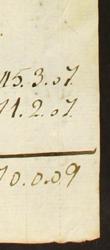 45.3.07
71.2.07
70.0.09